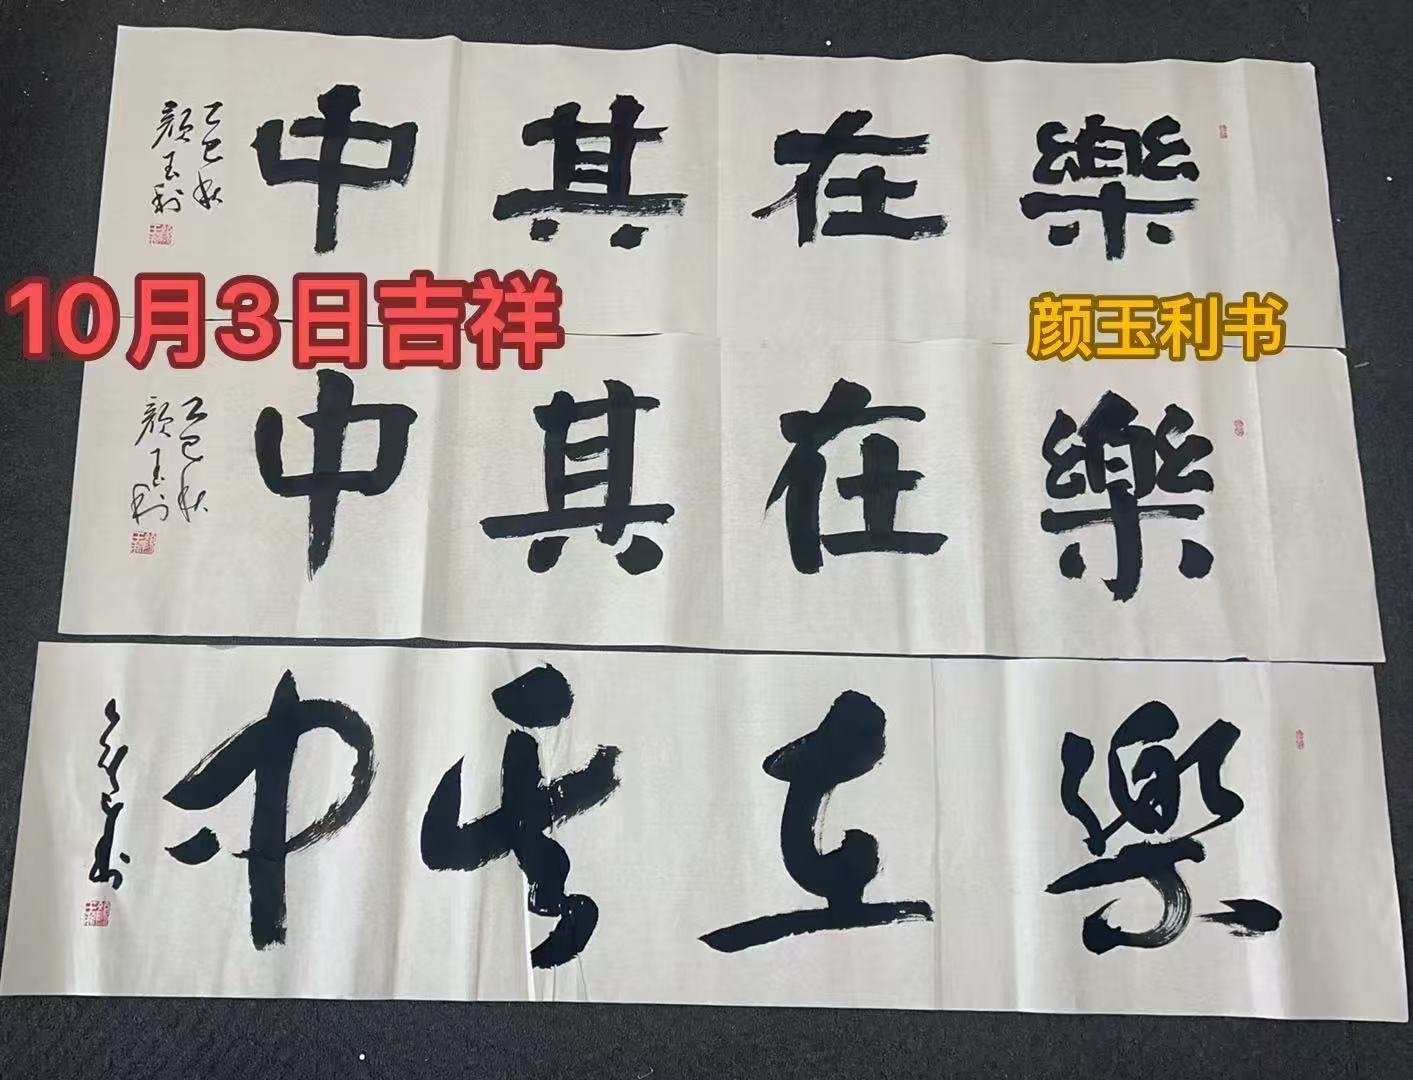 樂在其中
乙巳秋
颜玉利
10月3日吉祥
颜玉利书
樂在其中
乙巳秋
颜玉利
樂在其中